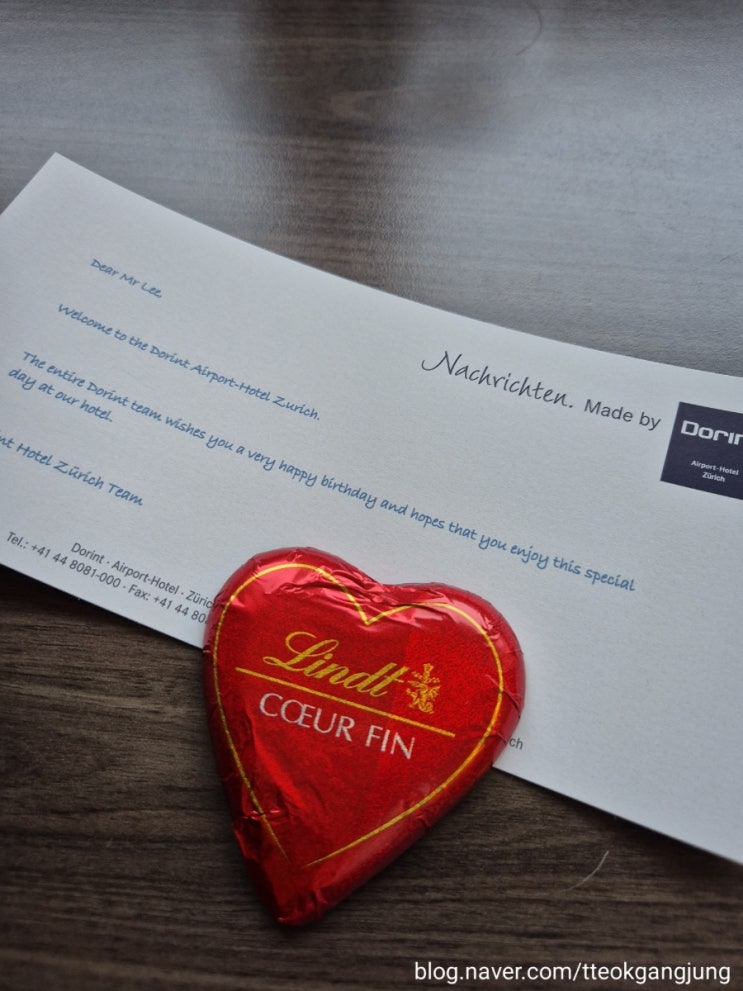 Dear Mr Lee
Welcome to the Dorint Airport-Hotel Zurich.
The entire Dorint team wishes you a very happy birthday and hopes that you enjoy this special
day at our hotel.
Hotel Zürich Team
Nachrichten. Made by
Airport-Hotel
Zürich
Dorint · Airport-Hotel ·
Tel.: +41 44 8081-000 · Fax: +41 44
Lindt
CŒUR FIN
blog.naver.com/tteokgangjung